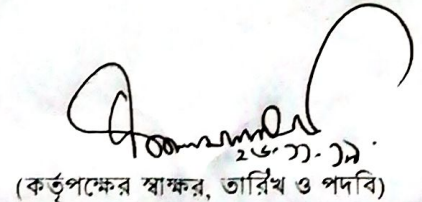 ২৬.১১.১৯.
(কর্তৃপক্ষের স্বাক্ষর, তারিখ ও পদবি)